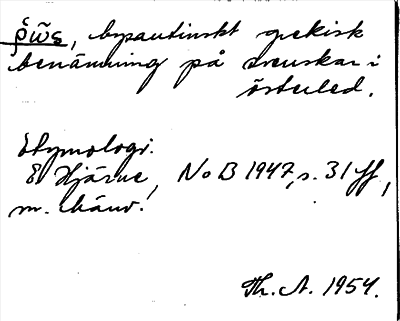 ῥῶς, bysantinskt grekisk
benämning på svenskar i
österled.
Etymologi:
E Hjärne, NoB 1947, s. 31 ff,
m. hänv.
Th. A. 1954.